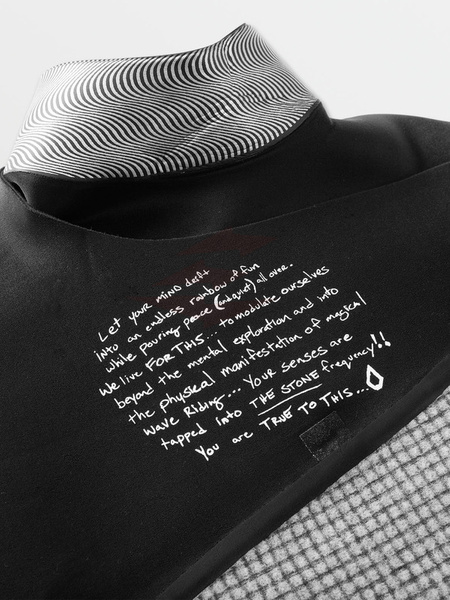 Let your MIND drift
into an endless rainbow of fun
while pouring peace (and quiet) all over.
We live FOR THIS... to modulate ourselves
beyond the mental exploration and into
the physical manifestation of magical
wave Riding... Your senses are
tapped into THE STONE frequency!!
You are TRUE TO THIS...